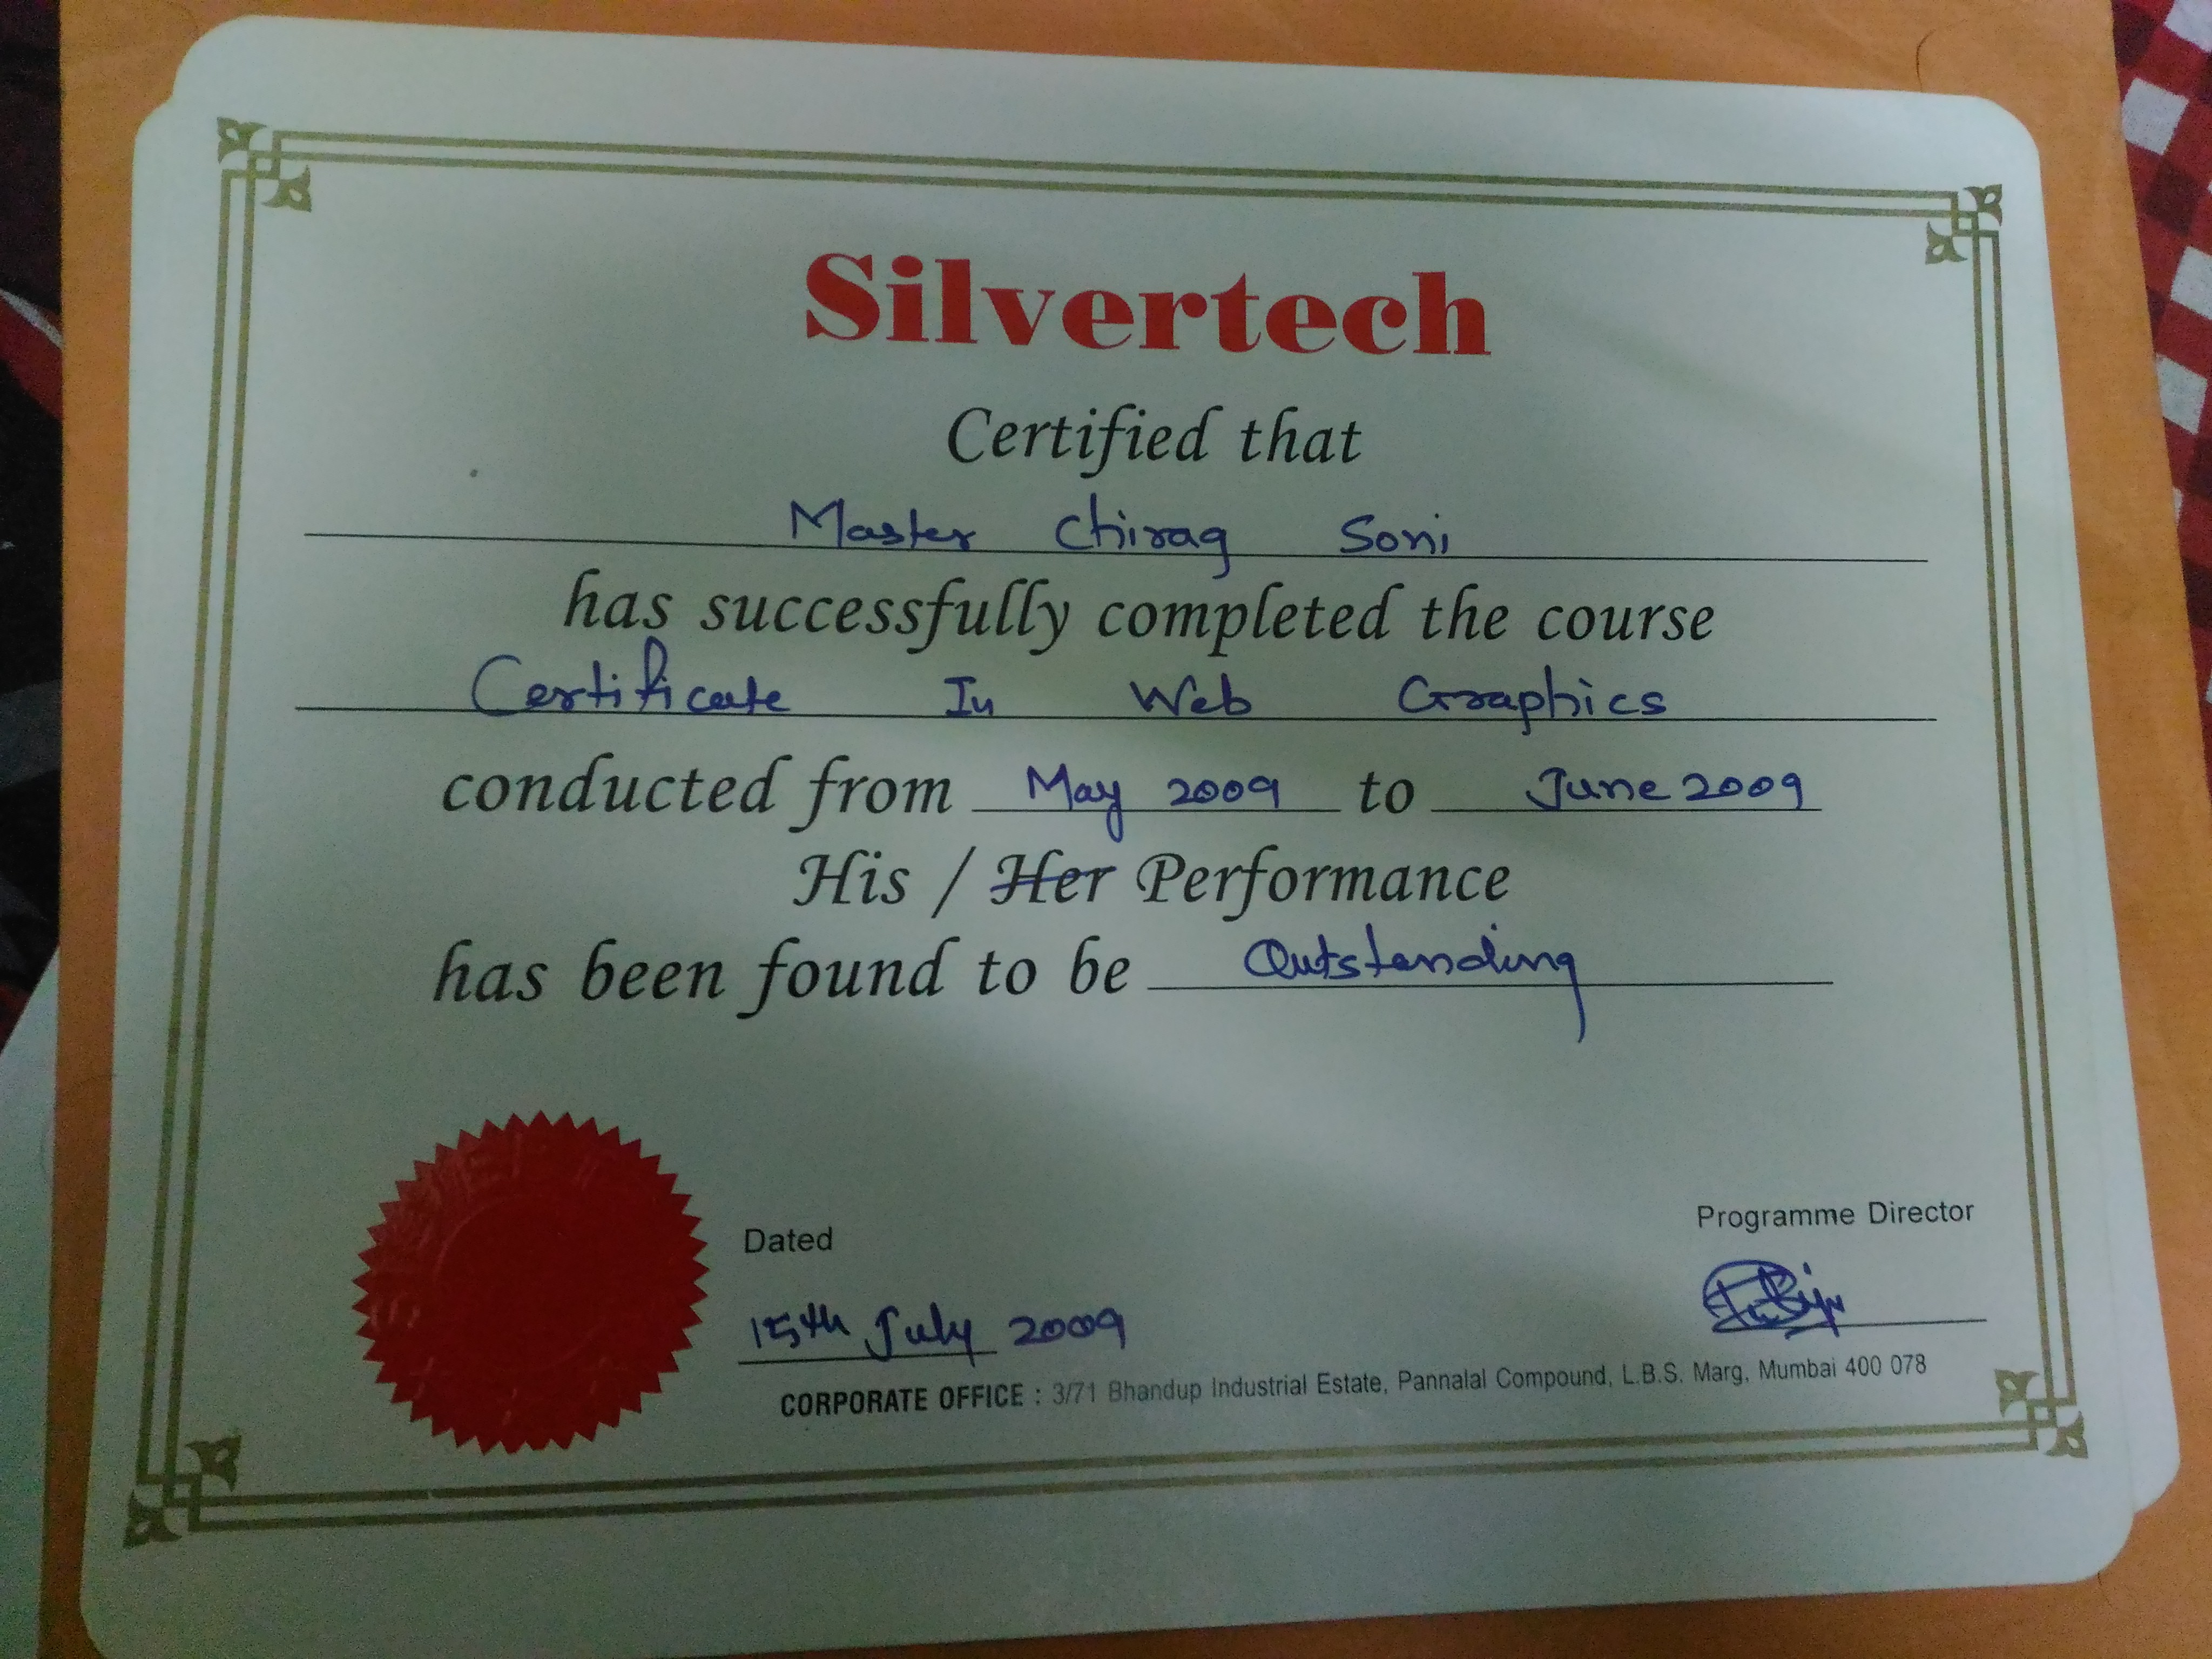 Silvertech
Certified that
Master Chirag Soni
has successfully completed the course
Certificate In Web Graphics
conducted from May 2009 to June 2009
His / Her Performance
has been found to be Outstanding
Programme Director
Dated
15th July 2009
CORPORATE OFFICE : 3/71 Bhandup Industrial Estate, Pannalal Compound, L.B.S. Marg, Mumbai 400 078